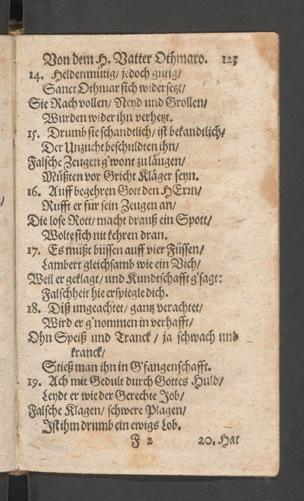 Von dem H. Vatter Othmaro. 123
14. Heldenmütig/ jedoch gütig/
Sanct Othmar sich widersetzt/
Sie Rach vollen/ Neyd und Grollen/
Wurden wider ihn verhetzt.
15. Drumb sie schandtlich/ ist bekandtlich/
Der Unzucht beschuldten ihn/
Falsche Zeugen g'wont zu läugen/
Müßten vor Gricht Kläger seyn.
16. Auff begehren Gott den HErrn/
Rufft er für sein Zeugen an/
Die lose Rott/ macht drauß ein Spott/
Wolte sich nit kehren dran.
17. Es müßt büssen auff vier Füssen/
Lambert gleichsamb wie ein Vich/
Weil er geklagt/ und Kundtschafft g'sagt:
Falschheit hie erspiegle dich.
18. Diß ungeachtet/ gantz verachtet/
Wird er g'nommen in verhafft/
Ohn Speiß und Tranck/ ja schwach und
kranck/
Stieß man ihn in G'fangenschafft.
19. Ach mit Gedult durch Gottes Huld/
Leydt er wie der Gerechte Job/
Falsche Klagen/ schwere Plagen/
Ist ihm drumb ein ewigs Lob.
F 2 20. Hat